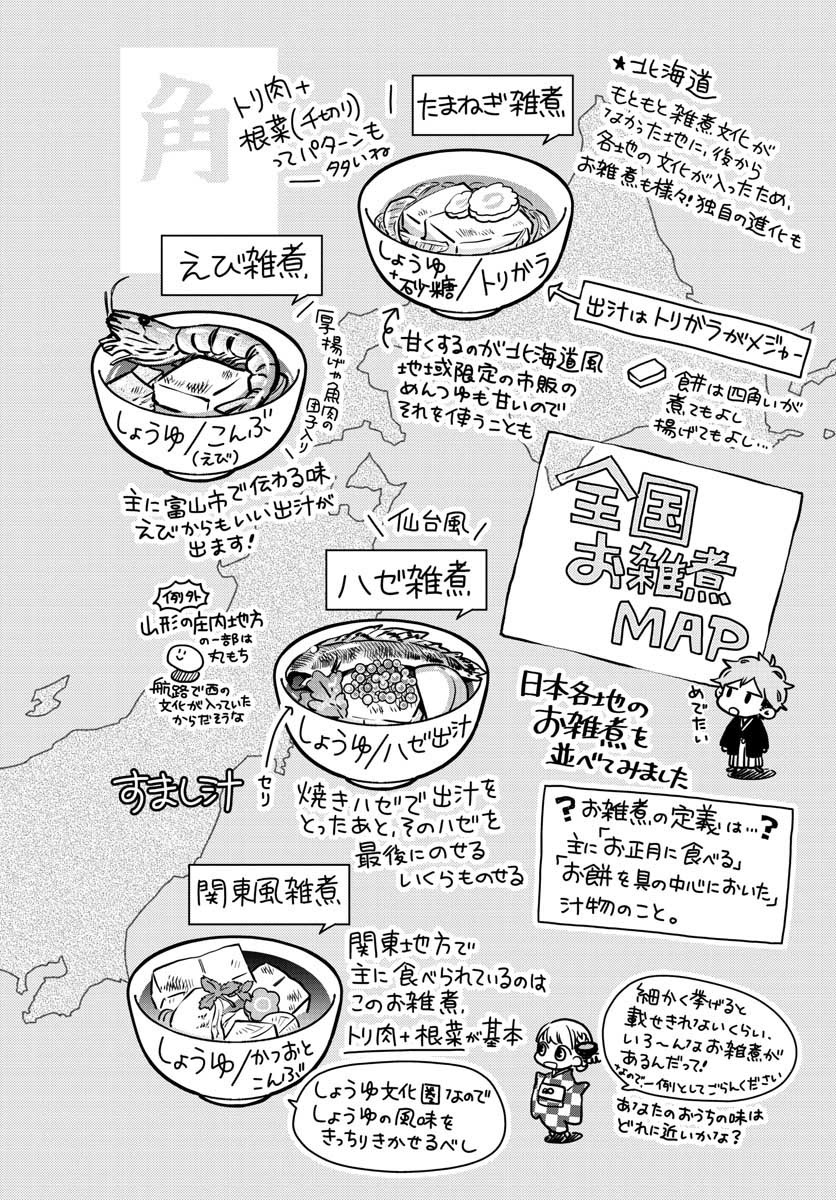 ★北海道
もともと雑煮文化が
なかった地に、後から
各地の文化が入ったため、
お雑煮も様々!独自の進化も
たまねぎ雑煮
トリ肉+
根菜(千切り)
ってパターンも
多いね
しょうゆ
+砂糖/トリガラ
出汁はトリガラがメジャー
餅は四角いが
煮てもよし
揚げてもよし…
甘くするのが北海道風
地域限定の市販の
めんつゆも甘いので
それを使うことも
角
えび雑煮
厚揚げや魚肉の
団子入り
しょうゆ/こんぶ
(えび)
主に富山市で伝わる味
えびからもいい出汁が
出ます!
全国
お雑煮
MAP
めでたい
日本各地の
お雑煮を
並べてみました
?お雑煮の定義は…?
主に「お正月に食べる」
「お餅を具の中心においた」
汁物のこと。
仙台風
ハゼ雑煮
しょうゆ/ハゼ出汁
セリ
焼きハゼで出汁を
とったあと、そのハゼを
最後にのせる
いくらものせる
例外
山形の庄内地方
の一部は
丸もち
航路で西の
文化が入っていた
からだそうな
すまし汁
関東風雑煮
しょうゆ/かつおと
こんぶ
関東地方で
主に食べられているのは
このお雑煮。
トリ肉+根菜が基本
しょうゆ文化圏なので
しょうゆの風味を
きっちりきかせるべし
細かく挙げると
載せきれないくらい、
いろ〜んなお雑煮が
あるんだって!
なので一例としてごらんください
あなたのおうちの味は
どれに近いかな?